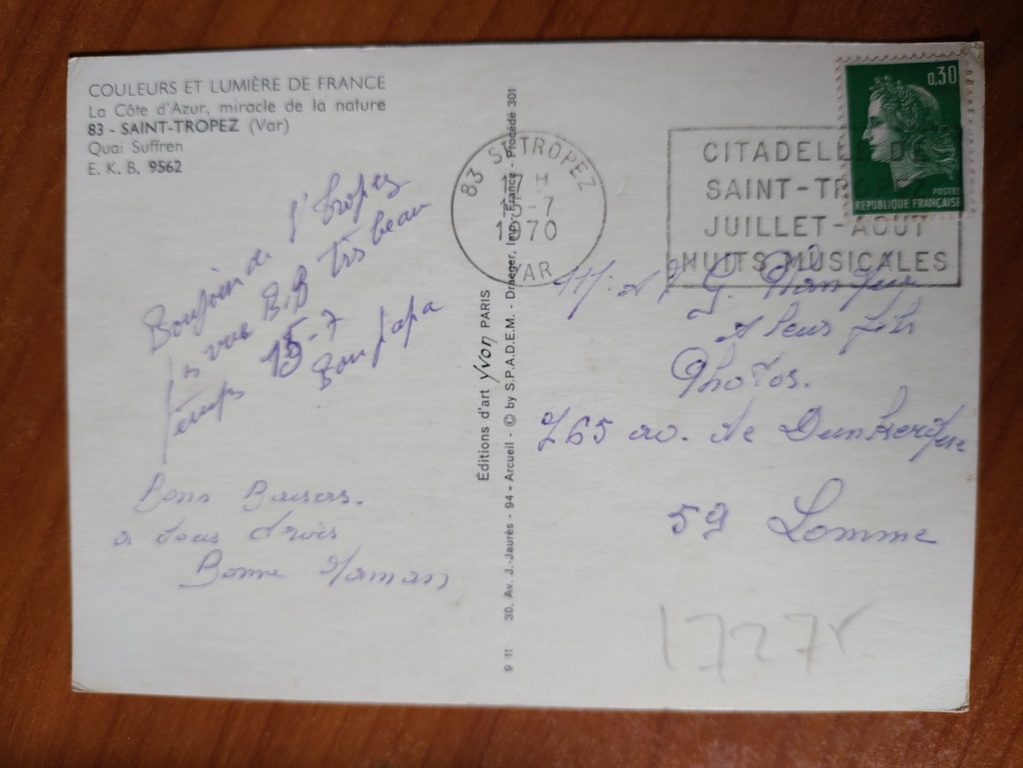 COULEURS ET LUMIÈRE DE FRANCE
La Côte d'Azur, miracle de la nature
83 - SAINT-TROPEZ (Var)
Quai Suffren
E. K. B. 9562
Bonjour de St Tropez
vue B.B très beau
temps 15-7
Bon Papa
Bons Baisers.
a tous trois
Bonne Maman
Éditions d'art Yvon PARIS
30, Av. J.-Jaurès - 94 - Arcueil - © by S.P.A.D.E.M. - Draeger, Imp., France - Procédé 301
9 11
83 ST TROPEZ
17 H
15-7
1970
VAR
CITADELLE DE
SAINT-TROPEZ
JUILLET-AOUT
NUITS MUSICALES
0,30
POSTES
REPUBLIQUE FRANÇAISE
M. et Me G.
& leur fils
Photos.
765 av. de Dunkerque
59 Lomme